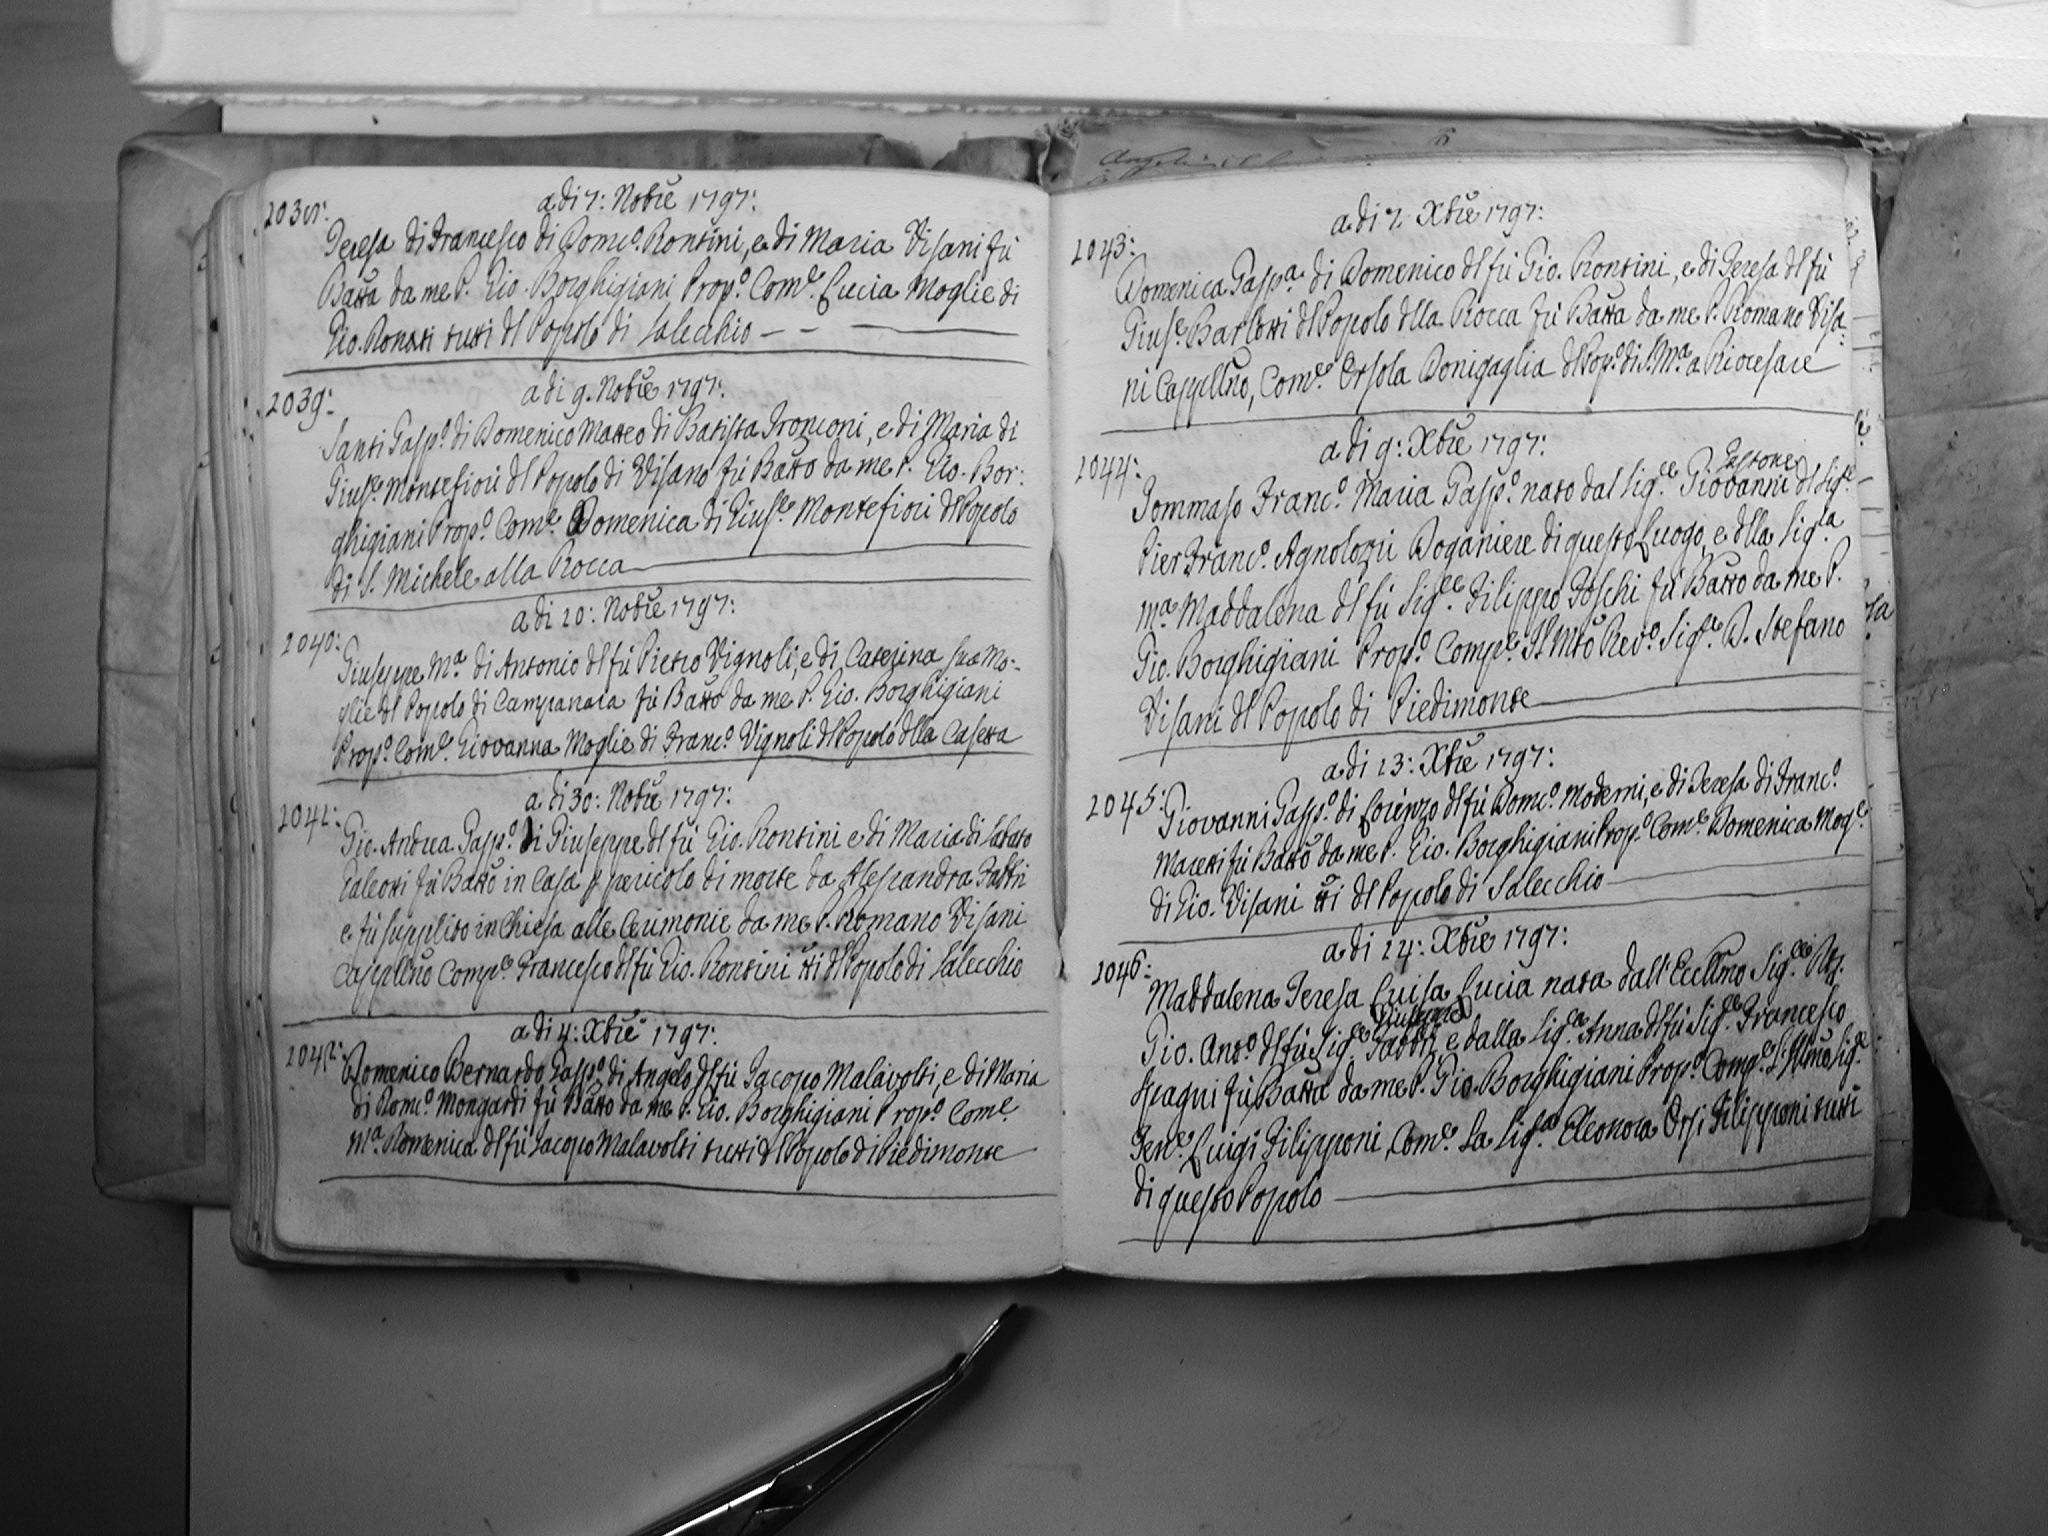 a di 7: Nobre 1797:
2038:
Teresa di Francesco di Domco. Rontini, e di Maria Visani fù
Batta da me P. Gio. Borghigiani Propo. Come. Lucia Moglie di
Gio. Ronati tutti dl Popolo di Salecchio
a di 9. Nobre 1797:
2039:
Santi Gaspo. di Domenico Matteo di Batista Fronconi, e di Maria di
Giuse. Montefiori dl Popolo di Visano fù Batto da me P. Gio. Bor:
ghigiani Propo. Come. Domenica di Giuse. Montefiori dl Popolo
di S. Michele alla Rocca
a di 20: Nobre 1797:
2040:
Giuseppe Ma. di Antonio dl fù Pietro Vignoli, e di Caterina sua Mo:
glie dl Popolo di Campanara fù Batto da me P. Gio. Borghigiani
Propo. Come. Giovanna Moglie di Franco. Vignoli dl Popolo dlla Casetta
a di 30: Nobre 1797:
2041:
Gio. Andrea Gaspo. di Giuseppe dl fù Gio. Rontini e di Maria di Sabato
Galeotti fù Batto in Casa p pericolo di morte da Alessandra Fabbri
e fù supplito in Chiesa alle Cerimonie da me P. Romano Visani
Cappellno Compe. Francesco dl fù Gio. Rontini tti dl Popolo di Salecchio
a di 4: Xbre 1797:
2042:
Domenico Bernardo Gaspo. di Angelo dl fù Jacopo Malavolti, e di Maria
di Domco. Mongardi fù Batto da me P. Gio. Borghigiani Propo. Come.
Ma. Domenica dl fù Jacopo Malavolti tutti dl Popolo di Piedimonte
a di 7: Xbre 1797:
2043:
Domenica Gaspa. di Domenico dl fù Gio. Rontini, e di Teresa dl fù
Giuse. Barlotti dl Popolo dlla Rocca fù Batta da me P. Romano Visa:
ni Cappellno, Come. Orsola Donigaglia dl Popo. di S. Ma. a Riocesare
a di 9: Xbre 1797:
2044:
Gastone
Tommaso Franco. Maria Gaspo. nato dal Sige. Giovanni dl Sige.
Pier Franco. Agnolozzi Doganiere di questo Luogo, e dlla Siga.
Ma. Maddalena dl fù Sige. Filippo Foschi fù Batto da me P.
Gio. Borghigiani Propo. Compe. Il Mto Revo. Sige. D. Stefano
Visani dl Popolo di Piedimonte
a di 13: Xbre 1797:
2045:
Giovanni Gaspo. di Lorenzo dl fù Domco. Moderni, e di Teresa di Franco.
Maretti fù Batto da me P. Gio. Borghigiani Propo. Come. Domenica Moge.
di Gio. Visani tti dl Popolo di Salecchio
a di 24: Xbre 1797:
2046:
Maddalena Teresa Luisa Lucia nata dall' Eccllmo Sige.
Gio. Anto. dl fù Sige. Fabbri, e dalla Siga. Anna dl fù Sige. Francesco
fù Batta da me P. Gio. Borghigiani Propo. Compe. L'Illmo Sige.
Tene. Luigi Filipponi, Come. La Siga. Eleonora Orsi Filipponi tutti
di questo Popolo